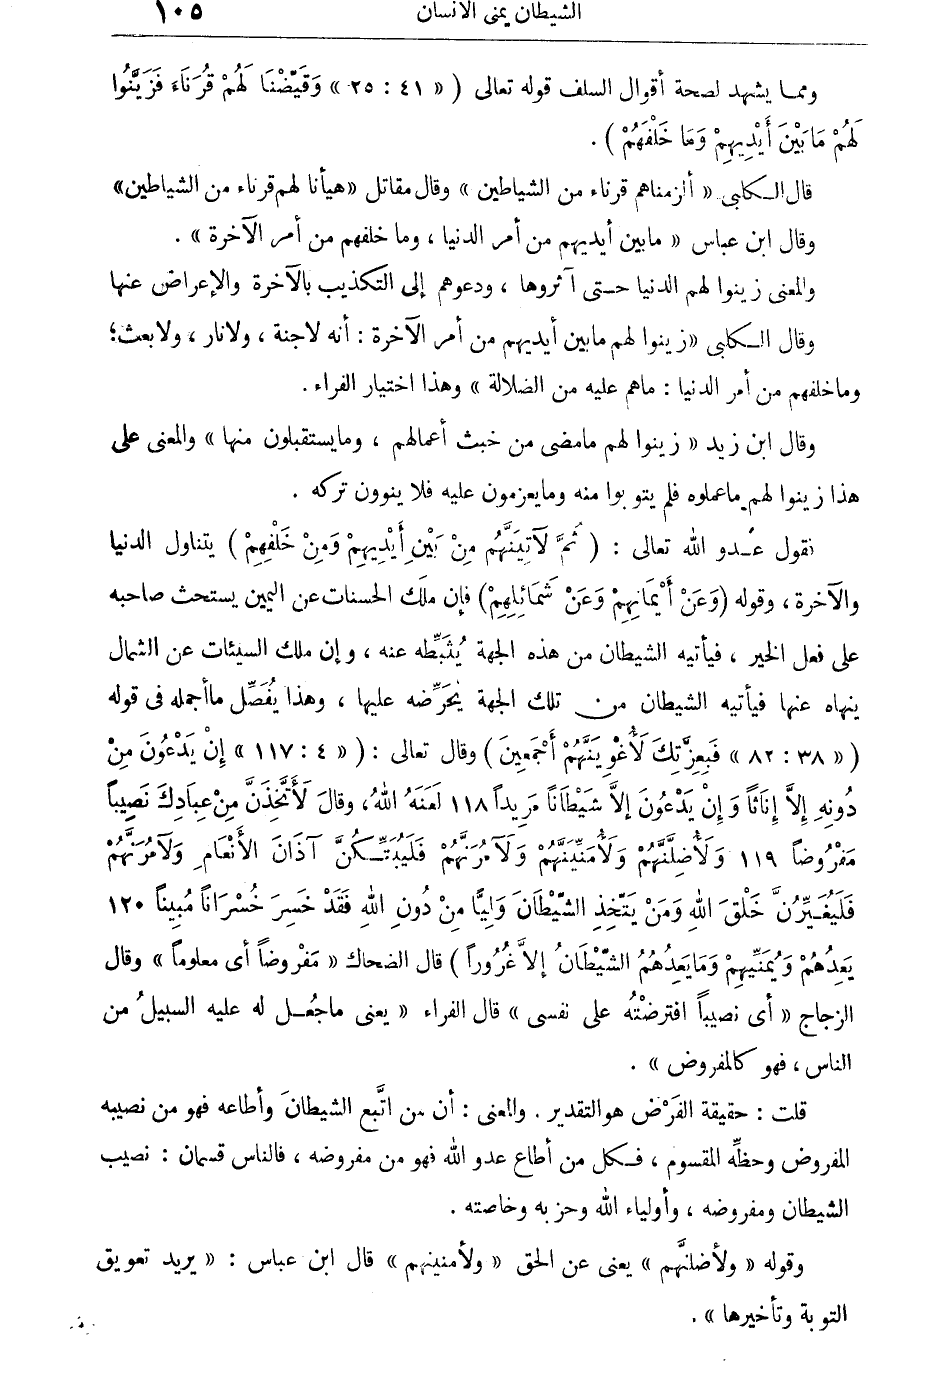 الشيطان يمنى الانسان ١٠٥
ومما يشهد لصحة أقوال السلف قوله تعالى ( « ٤١ : ٢٥ » وَقَيَّضْنَا لَهُمْ قُرَنَاءَ فَزَيَّنُوا
لَهُمْ مَا بَيْنَ أَيْدِيهِمْ وَمَا خَلْفَهُمْ ) .
قال الكلبى « ألزمناهم قرناء من الشياطين » وقال مقاتل «هيأنا لهم قرناء من الشياطين»
وقال ابن عباس « مابين أيديهم من أمر الدنيا ، وما خلفهم من أمر الآخرة » .
والمعنى زينوا لهم الدنيا حتى آثروها ، ودعوهم إلى التكذيب بالآخرة والإعراض عنها
وقال الكلبى «زينوا لهم مابين أيديهم من أمر الآخرة : أنه لاجنة ، ولانار ، ولابعث؛
وماخلفهم من أمر الدنيا : ماهم عليه من الضلالة » وهذا اختيار الفراء .
وقال ابن زيد « زينوا لهم مامضى من خبث أعمالهم ، ومايستقبلون منها » والمعنى على
هذا زينوا لهم ماعملوه فلم يتوبوا منه ومايعزمون عليه فلا ينوون تركه .
نقول عدو الله تعالى : ( ثُمَّ لَآتِيَنَّهُم مِنْ بَيْنِ أَيْدِيهِمْ وَمِنْ خَلْفِهِمْ ) يتناول الدنيا
والآخرة ، وقوله (وَعَنْ أَيْمَانِهِمْ وَعَنْ شَمَائِلِهِمْ) فإن ملَك الحسنات عن اليمين يستحث صاحبه
على فعل الخير ، فيأتيه الشيطان من هذه الجهة يُثَبِّطه عنه ، وإن ملك السيئات عن الشمال
ينهاه عنها فيأتيه الشيطان من تلك الجهة يُحَرِّضه عليها ، وهذا يُفَصِّل ماأجمله فى قوله
( « ٣٨ : ٨٢ » فَبِعِزَّتِكَ لَأُغْوِيَنَّهُمْ أَجْمَعِينَ ) وقال تعالى : ( « ٤ : ١١٧ » إِنْ يَدْعُونَ مِنْ
دُونِهِ إِلاَّ إِنَاثًا وَإِنْ يَدْعُونَ إِلاَّ شَيْطَانًا مَرِيداً ١١٨ لَعَنَهُ اللهُ، وقالَ لَأَتَّخِذَنَّ مِنْ عِبَادِكَ نَصِيباً
مَفْرُوضاً ١١٩ وَلَأُضِلَّنَّهُمْ وَلَأُمَنِّيَنَّهُمْ وَلَآمُرَنَّهُمْ فَلَيُبَتِّكُنَّ آذَانَ الأَنْعَامِ وَلَآمُرَنَّهُمْ
فَلَيُغَيِّرُنَّ خَلْقَ اللهِ وَمَنْ يَتَّخِذِ الشَّيْطَانَ وَلِيًّا مِنْ دُونِ اللهِ فَقَدْ خَسِرَ خُسْرَاناً مُبِيناً ١٢٠
يَعِدُهُمْ وَيُمَنِّيهِمْ وَمَا يَعِدُهُمُ الشَّيْطَانُ إِلاَّ غُرُوراً ) قال الضحاك « مَفْرُوضاً أى معلوماً » وقال
الزجاج « أى نصيباً افترضْتُه على نفسى » قال الفراء « يعنى ماجُعل له عليه السبيلُ من
الناس ، فهو كالمفروض » .
قلت : حقيقة الفَرْض هو التقدير . والمعنى : أن من اتَّبع الشيطانَ وأطاعه فهو من نصيبه
المفروض وحظِّه المقسوم ، فكل من أطاع عدو الله فهو من مفروضه ، فالناس قسمان : نصيب
الشيطان ومفروضه ، وأولياء الله وحزبه وخاصته .
وقوله « ولأضلنَّهم » يعنى عن الحق « ولأمنينهم » قال ابن عباس : « يريد تعويق
التوبة وتأخيرها » .